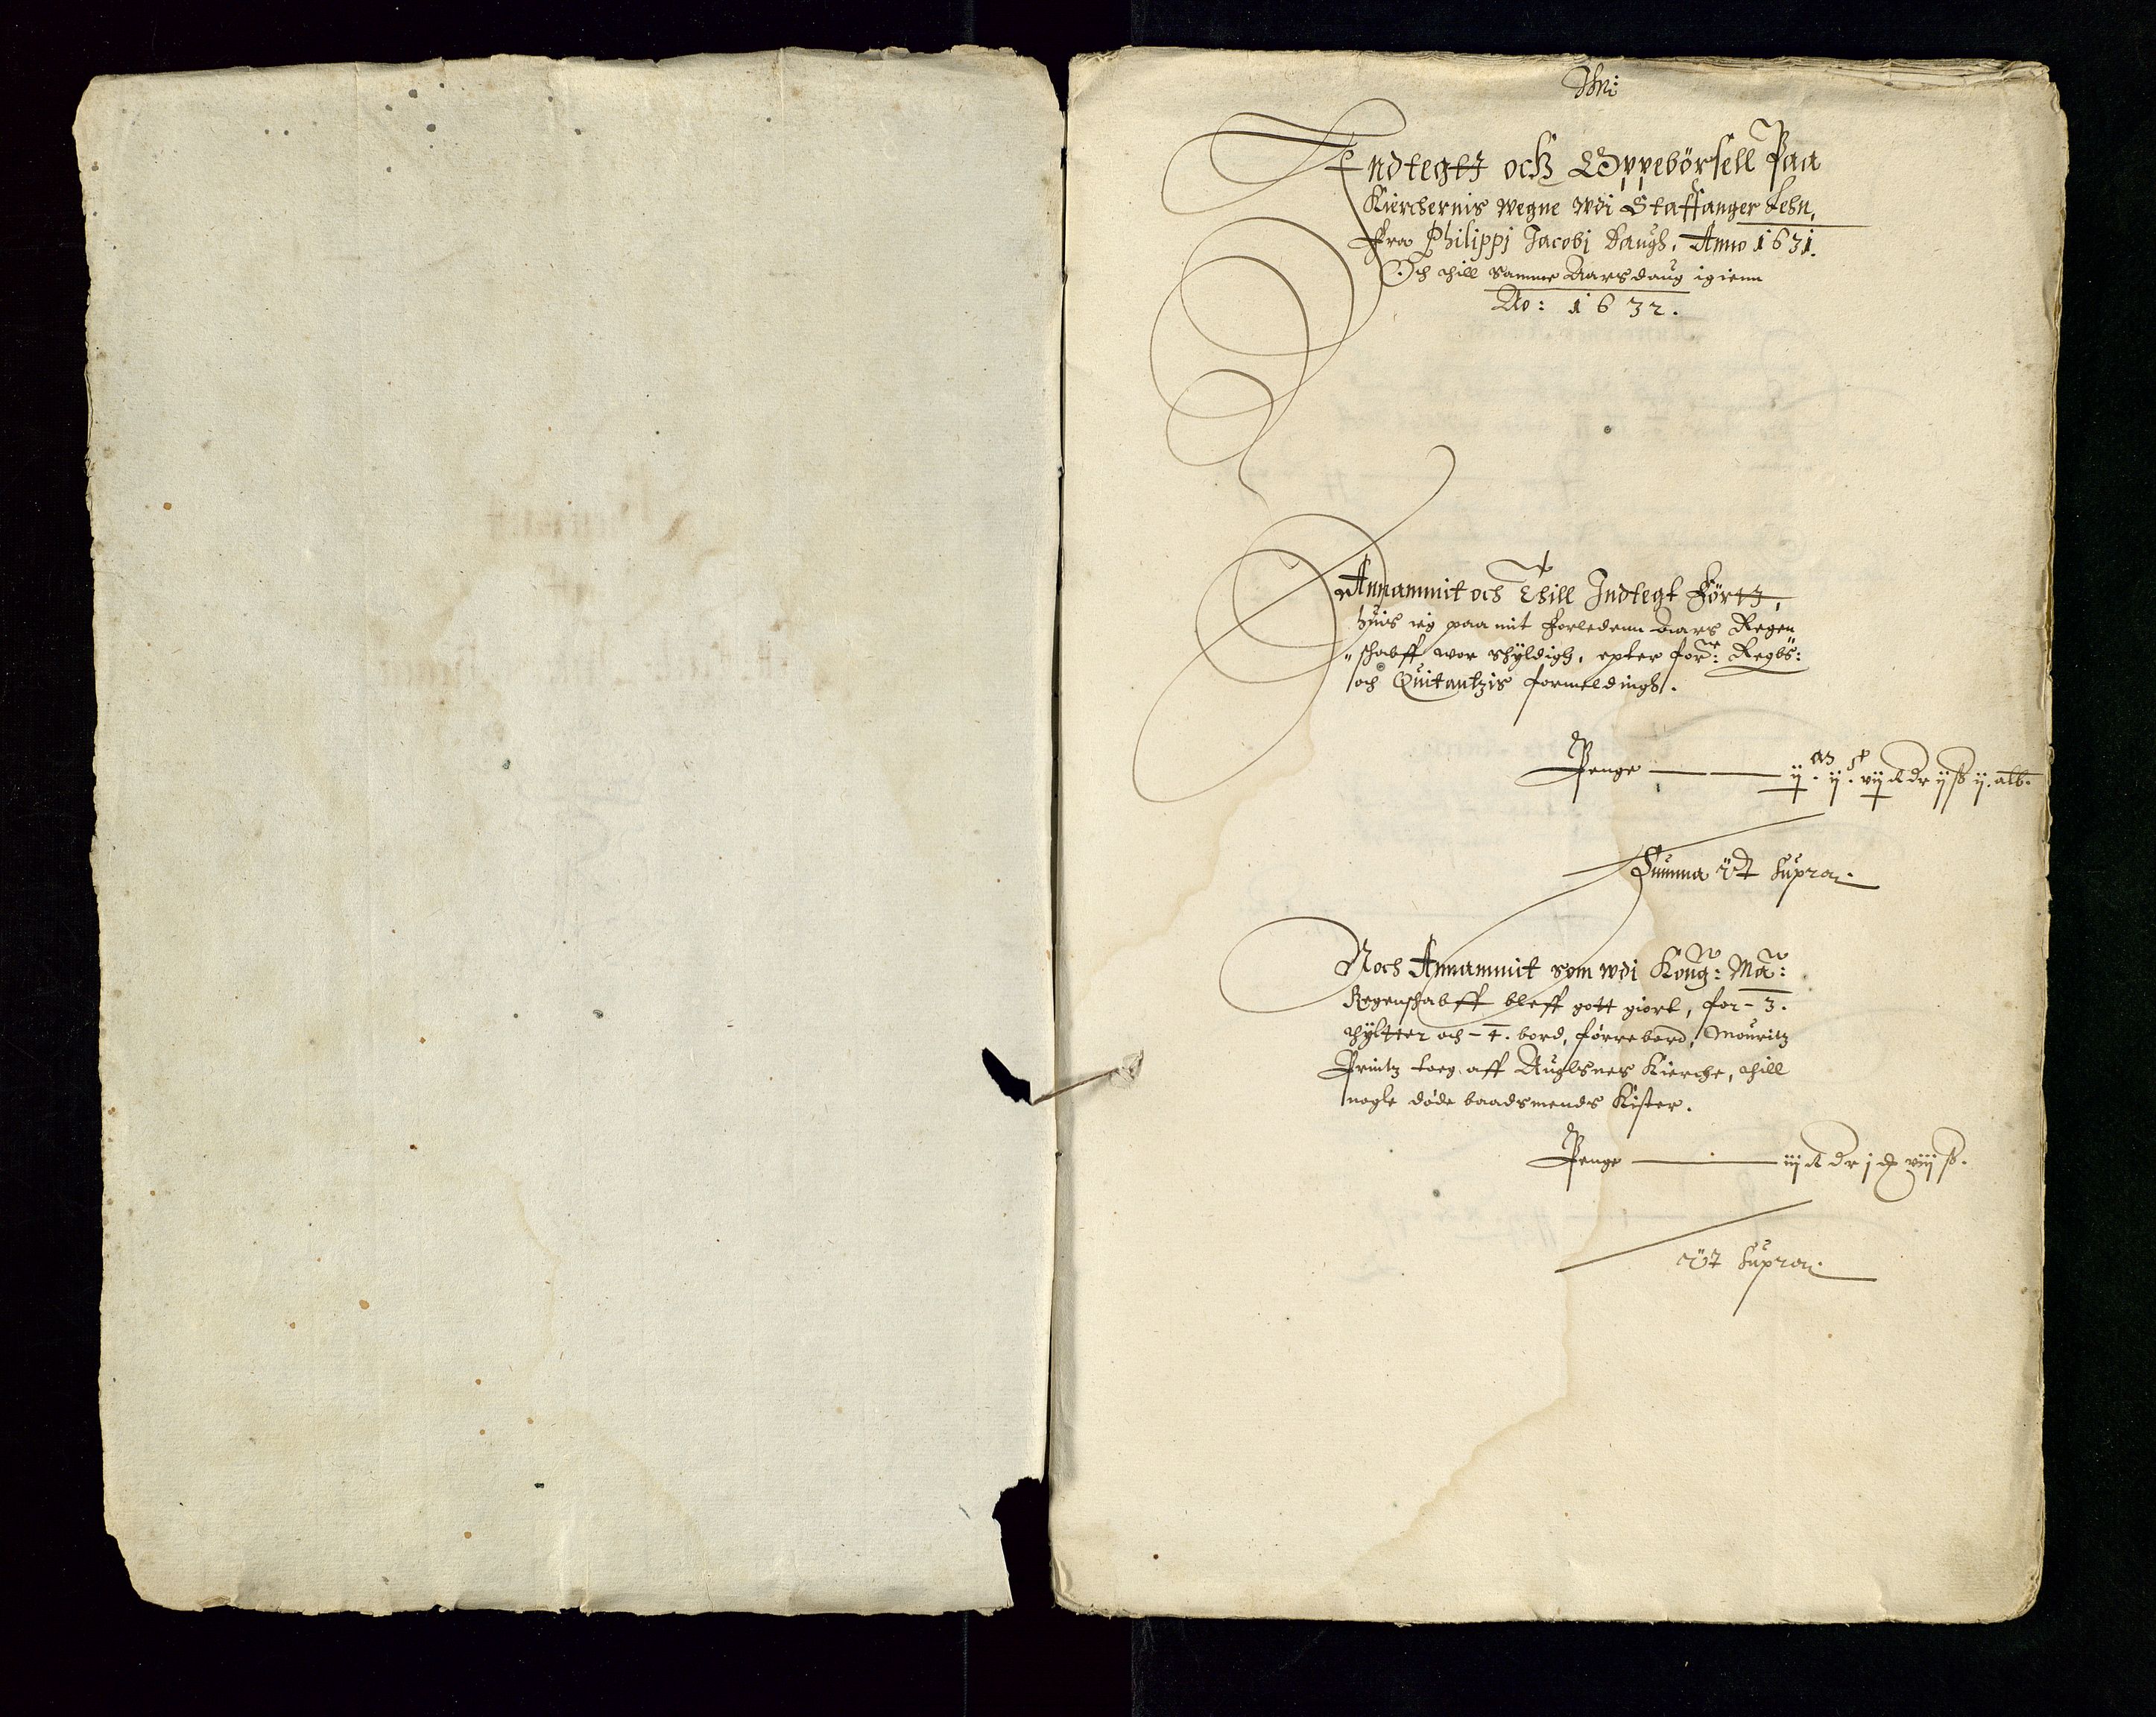 Jhm:
Indtegtt och Oppebörsell Paa
Kierchernis wegne wdi Staffanger Lehn,
Fra Philippj Jacobj Daugh. Anno 1631.
Och thill samme Aars daug igienn
Ao: 1632.
Annammit och Thill Indtegt Førtt,
huis ieg paa mit forledenn Aars Regen
"schabff wor schÿldigh, epter forne: Regbs:
och Quitantzis formeldingh.
Penge — ij. ij. vij dr ij ß ij. alb.
Summa Vt Supra.
Noch Annammit som wdi Kong: Ma:
Regenschabff bleff gott giort, for - 3.
thÿltter och - 4. bord, førre bord, Mouritz
Printz toeg aff Auglsnes Kierche, thill
nogle døde baadsmends Kister.
Penge — iij dr j viij ß.
Vt Supra.